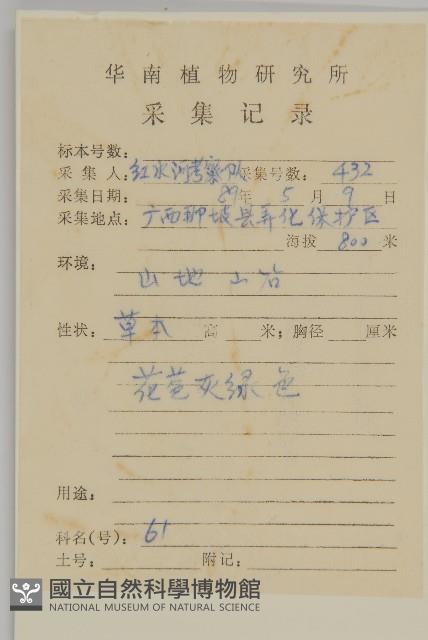 华南植物研究所
采集记录
标本号数:
采集人: 红水河考察队 采集号数: 432
采集日期: 89年 5月 9日
采集地点: 广西那坡县弄化保护区
海拔 800 米
环境:
山地 山谷
性状: 草本 高 米; 胸径 厘米
花苞灰绿色
用途:
科名(号): 61
土号: 附记:
國立自然科學博物館
NATIONAL MUSEUM OF NATURAL SCIENCE